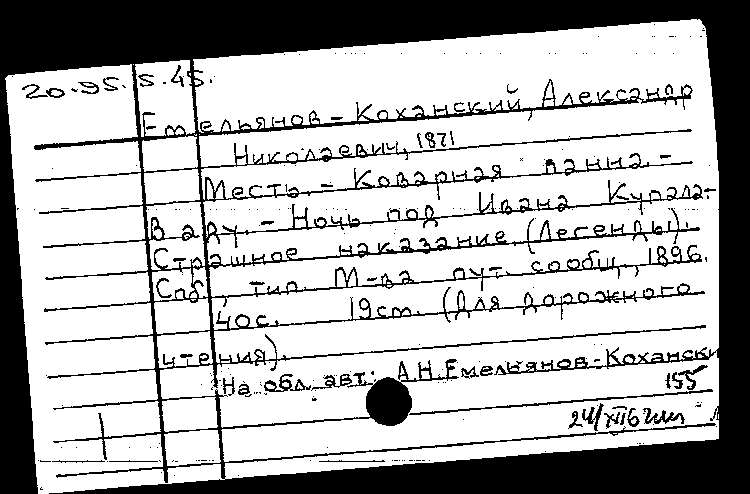 20.95.5.45.
Емельянов-Коханский, Александр
Николаевич, 1871
Месть. - Коварная панна. -
В аду. - Ночь под Ивана Купала. -
Страшное наказание. (Легенды).
Спб., тип. М-ва пут. сообщ., 1896.
40с. 19см. (Для дорожного
чтения).
На обл. авт.: А.Н.Емельянов-Кохански
155